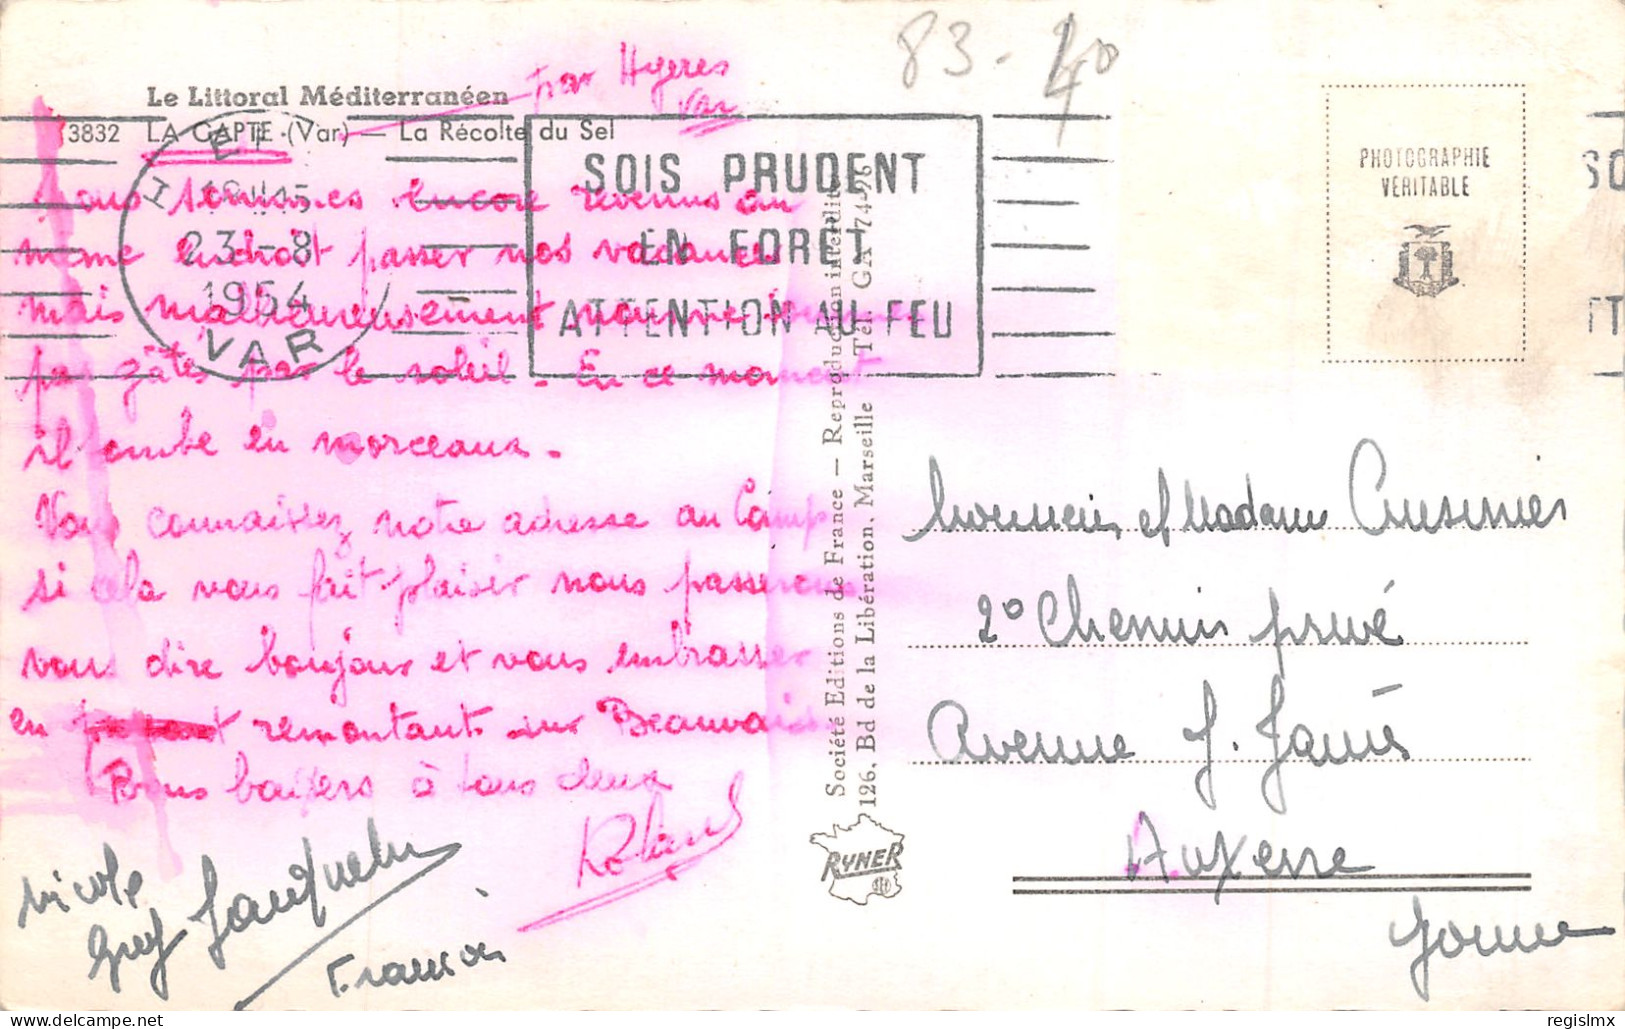 83 - 40
par Hyeres
Var
Le Littoral Méditerranéen
3832 LA CAPTE (Var) — La Récolte du Sel
23 - 8
1954
VAR
SOIS PRUDENT
EN FORET
ATTENTION AU FEU
PHOTOGRAPHIE
VÉRITABLE
Nous sommes encore revenus au
même endroit passer nos vacances
mais malheureusement nous ne sommes
pas gâtés par le soleil. En ce moment
il tombe en morceaux.
Vous connaissez notre adresse au Camp
si cela vous fait plaisir nous passerons
vous dire bonjour et vous embrasser
en remontant sur Beauvais
Bons baisers à tous deux
Roland
Nicole
Guy Jacqueline
Francis
Société Editions de France — Reproduction interdite
126, Bd de la Libération, Marseille Tél. GA 74-96
RYNER
Monsieur et Madame
2° Chemin privé
Avenue J. Jaurès
Auxerre
Yonne
SO
TT
regislmx